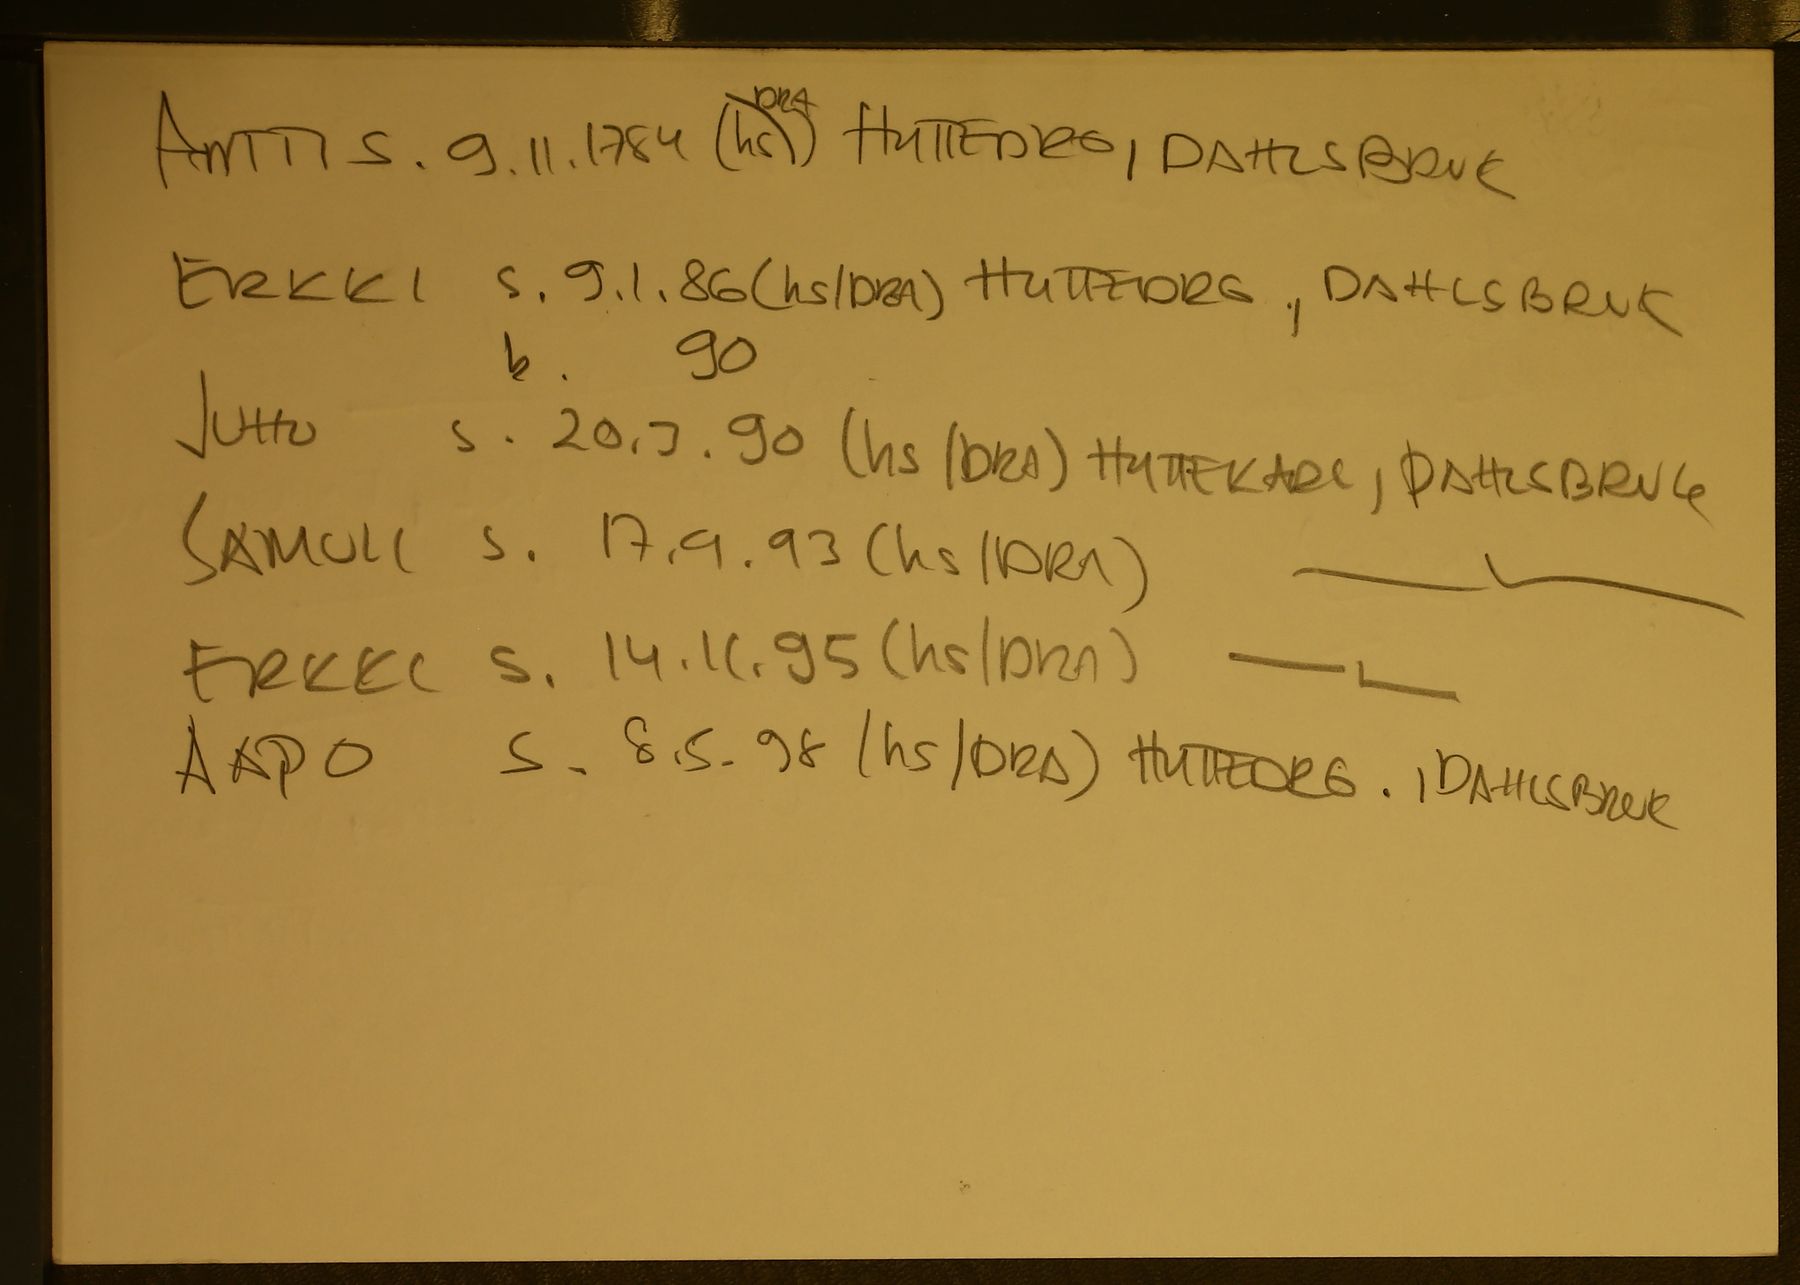 ANTTI S. 9.11.1784 (hs/DRA) HYTTEDRG, DAHLSBRUK
ERKKI s. 9.1.86 (hs/DRA) HYTTEDRG., DAHLSBRUK
k. 90
JUHO s. 20.3.90 (hs/DRA) HYTTEKARL, DAHLSBRUK
SAMULI s. 17.9.93 (hs/DRA) — " —
ERKKI s. 14.11.95 (hs/DRA) — " —
AAPO s. 8.5.98 (hs/DRA) HYTTEDRG., DAHLSBRUK